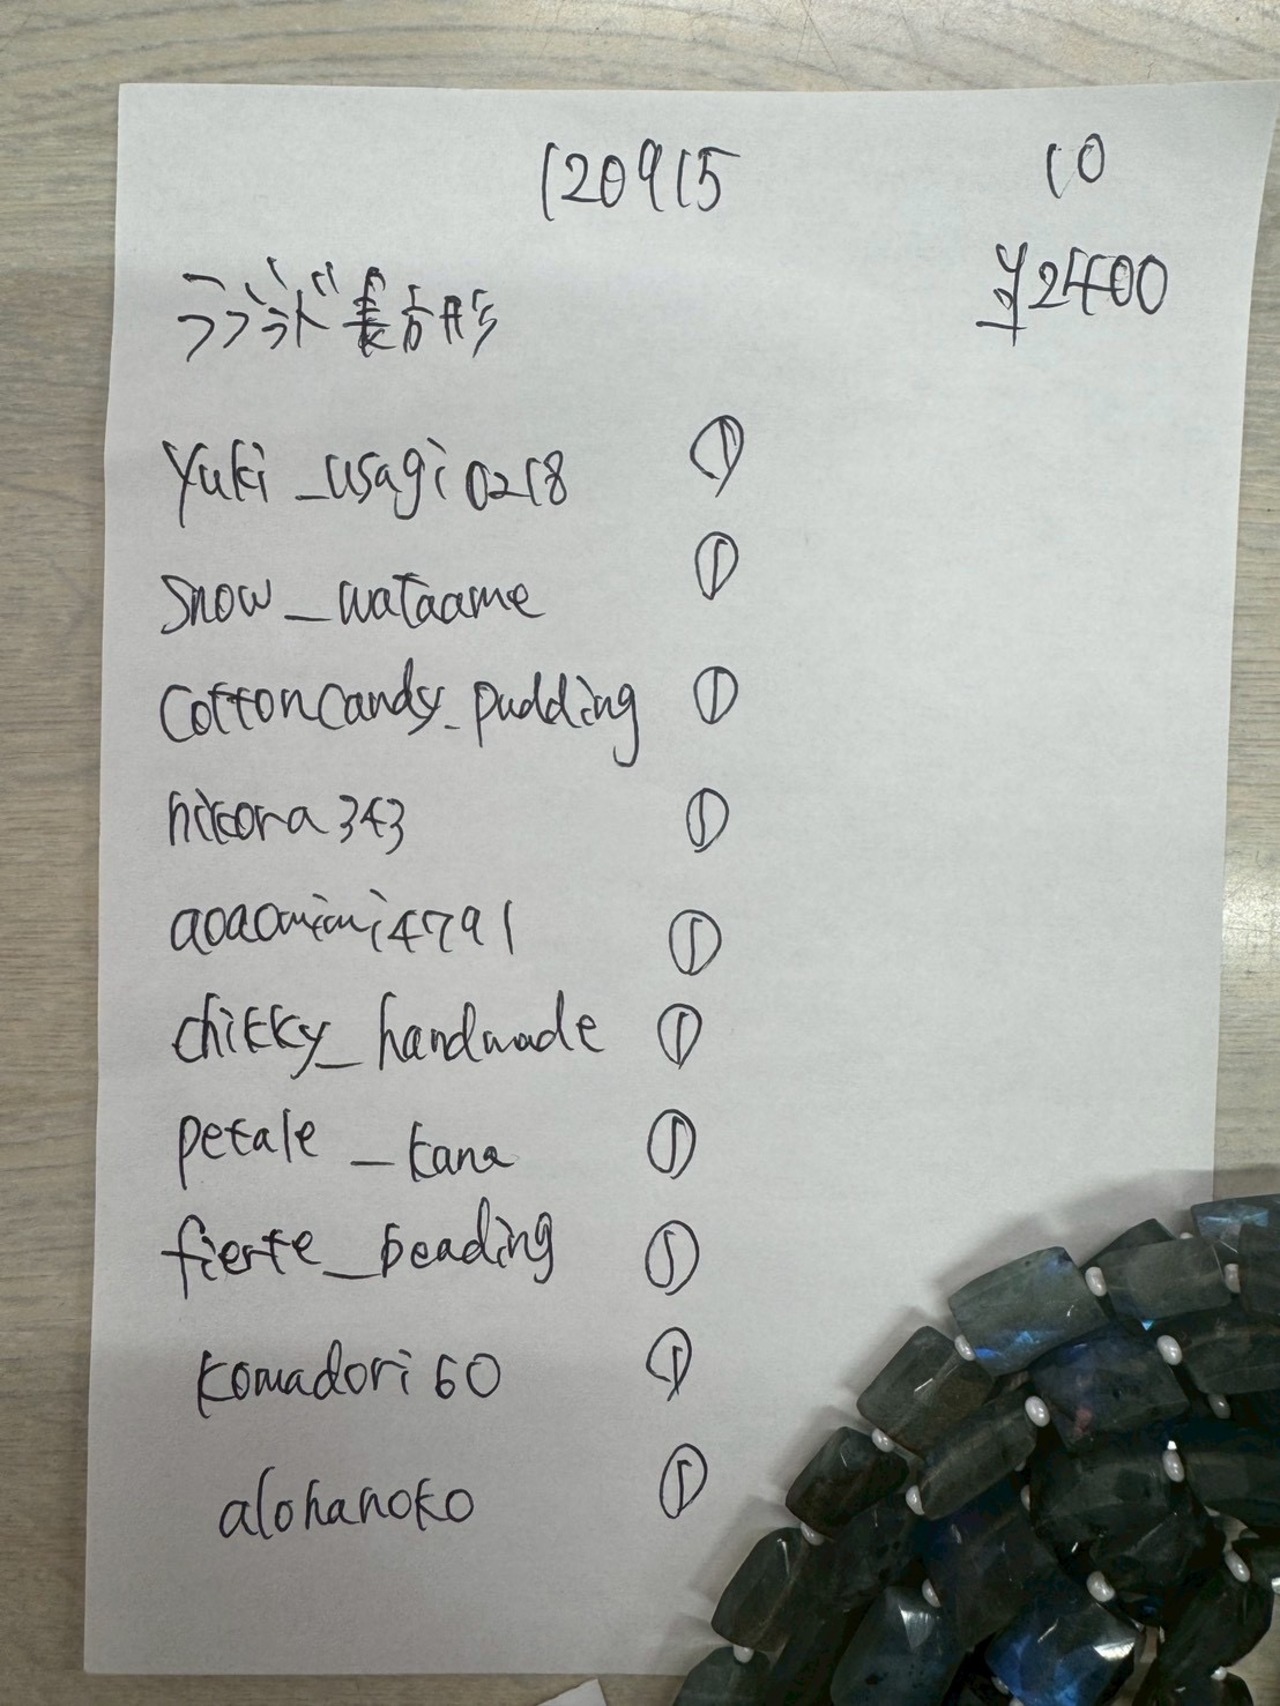 120915 10
ラブラド長方形 ¥2400
yuki_usagi0218 ①
snow_wataame ①
cottoncandy_pudding ①
nikora343 ①
aoaomimi4791 ①
chikky_handmade ①
petale_kana ①
fierte_beading ①
komadori60 ①
alohanoko ①